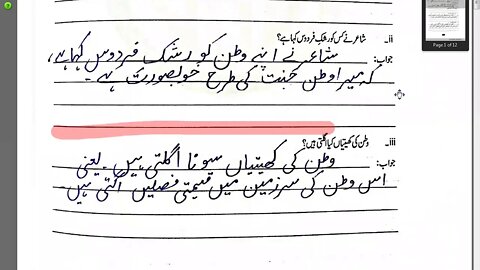 Page 1 of 12
ii۔ شاعر نے کس کو رشک فردوس کہا ہے؟
جواب: شاعر نے اپنے وطن کو رشک فردوس کہا ہے،
کہ میرا وطن جنت کی طرح خوبصورت ہے۔
iii۔ وطن کی کھیتیاں کیا اگلتی ہیں؟
جواب: وطن کی کھیتیاں سونا اگلتی ہیں۔ یعنی
اس وطن کی سرزمین میں قیمتی فصلیں اگتی ہیں